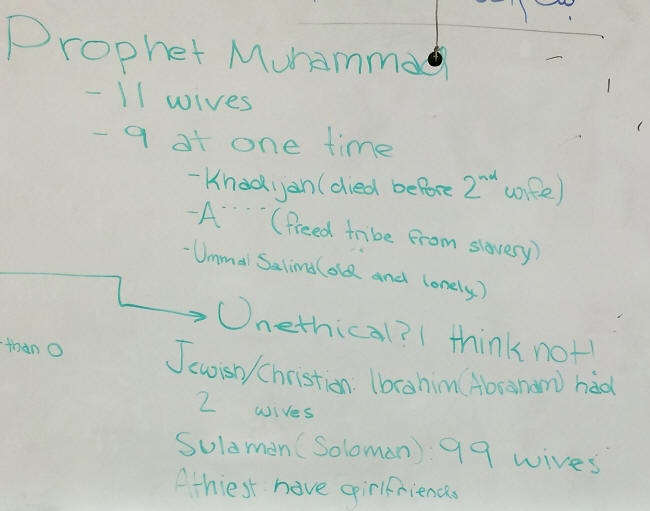 Prophet Muhammad
- 11 wives
- 9 at one time
- Khadijah (died before 2nd wife)
- A ..... (freed tribe from slavery)
- Ummal Salima (old and lonely)
Unethical? I think not!
than 0
Jewish/Christian: Ibrahim (Abraham) had
2 wives
Sulaman (Soloman): 99 wives
Athiest have girlfriends